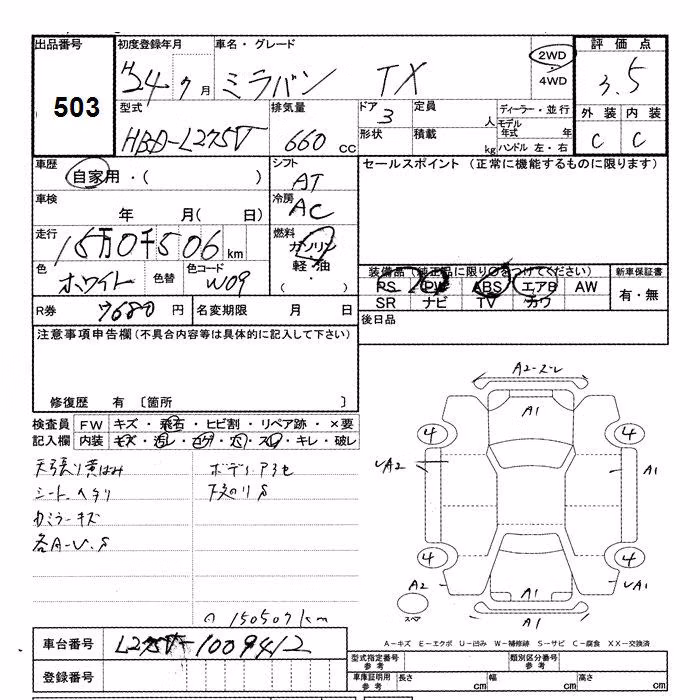 出品番号 初度登録年月 車名・グレード 評価点
503
H24年 7月 ミラバン TX 2WD 3.5
4WD
型式 排気量 ドア 3 定員 人 ディーラー・並行 外装 内装
モデル年式 年
HBD-L275V 660 cc 形状 積載 kg ハンドル 左・右 C C
車歴 シフト セールスポイント (正常に機能するものに限ります)
自家用・( ) AT
車検 冷房
年 月( 日) AC
走行 燃料
15万0千506 km ガソリン
軽・油
・( )
色 色替 色コード 装備品(純正品に限り○をつけてください) 新車保証書
ホワイト W09 PS PW ABS エアB AW 有・無
SR ナビ TV カワ
R券 7680 円 名変期限 月 日 後日品
注意事項申告欄(不具合内容等は具体的に記入して下さい)
修復歴 有 〔箇所 〕
検査員記入欄 FW キズ・飛石・ヒビ割・リペア跡・×要
内装 キズ・汚レ・コゲ・穴・スレ・キレ・破レ
天張り黄ばみ ボディA3
シートヘタリ 下廻りS
カミラーキズ
各A・U・S
150507km
A2-ズレ
A1
4 4
A2 A1
4 4
A2 UA1
A1
A1
スペア
A-キズ E-エクボ U-凹み W-補修跡 S-サビ C-腐食 XX-交換済
車台番号 L275V-1009412
型式指定番号 参考 類別区分番号 参考
登録番号 車庫証明用 参考 長さ cm 幅 cm 高さ cm